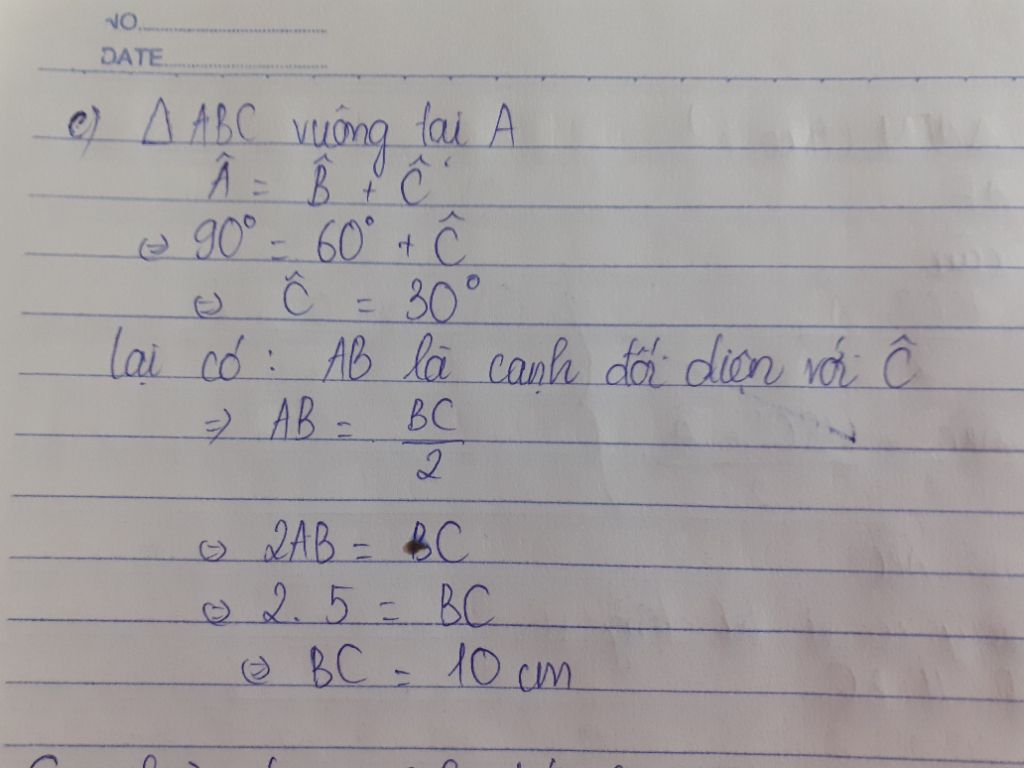 NO.
DATE
c) Δ ABC vuông tại A
Â = B̂ + Ĉ
⇔ 90° = 60° + Ĉ
⇔ Ĉ = 30°
lại có : AB là cạnh đối diện với Ĉ
⇒ AB = BC/2
⇔ 2AB = BC
⇔ 2. 5 = BC
⇔ BC = 10 cm